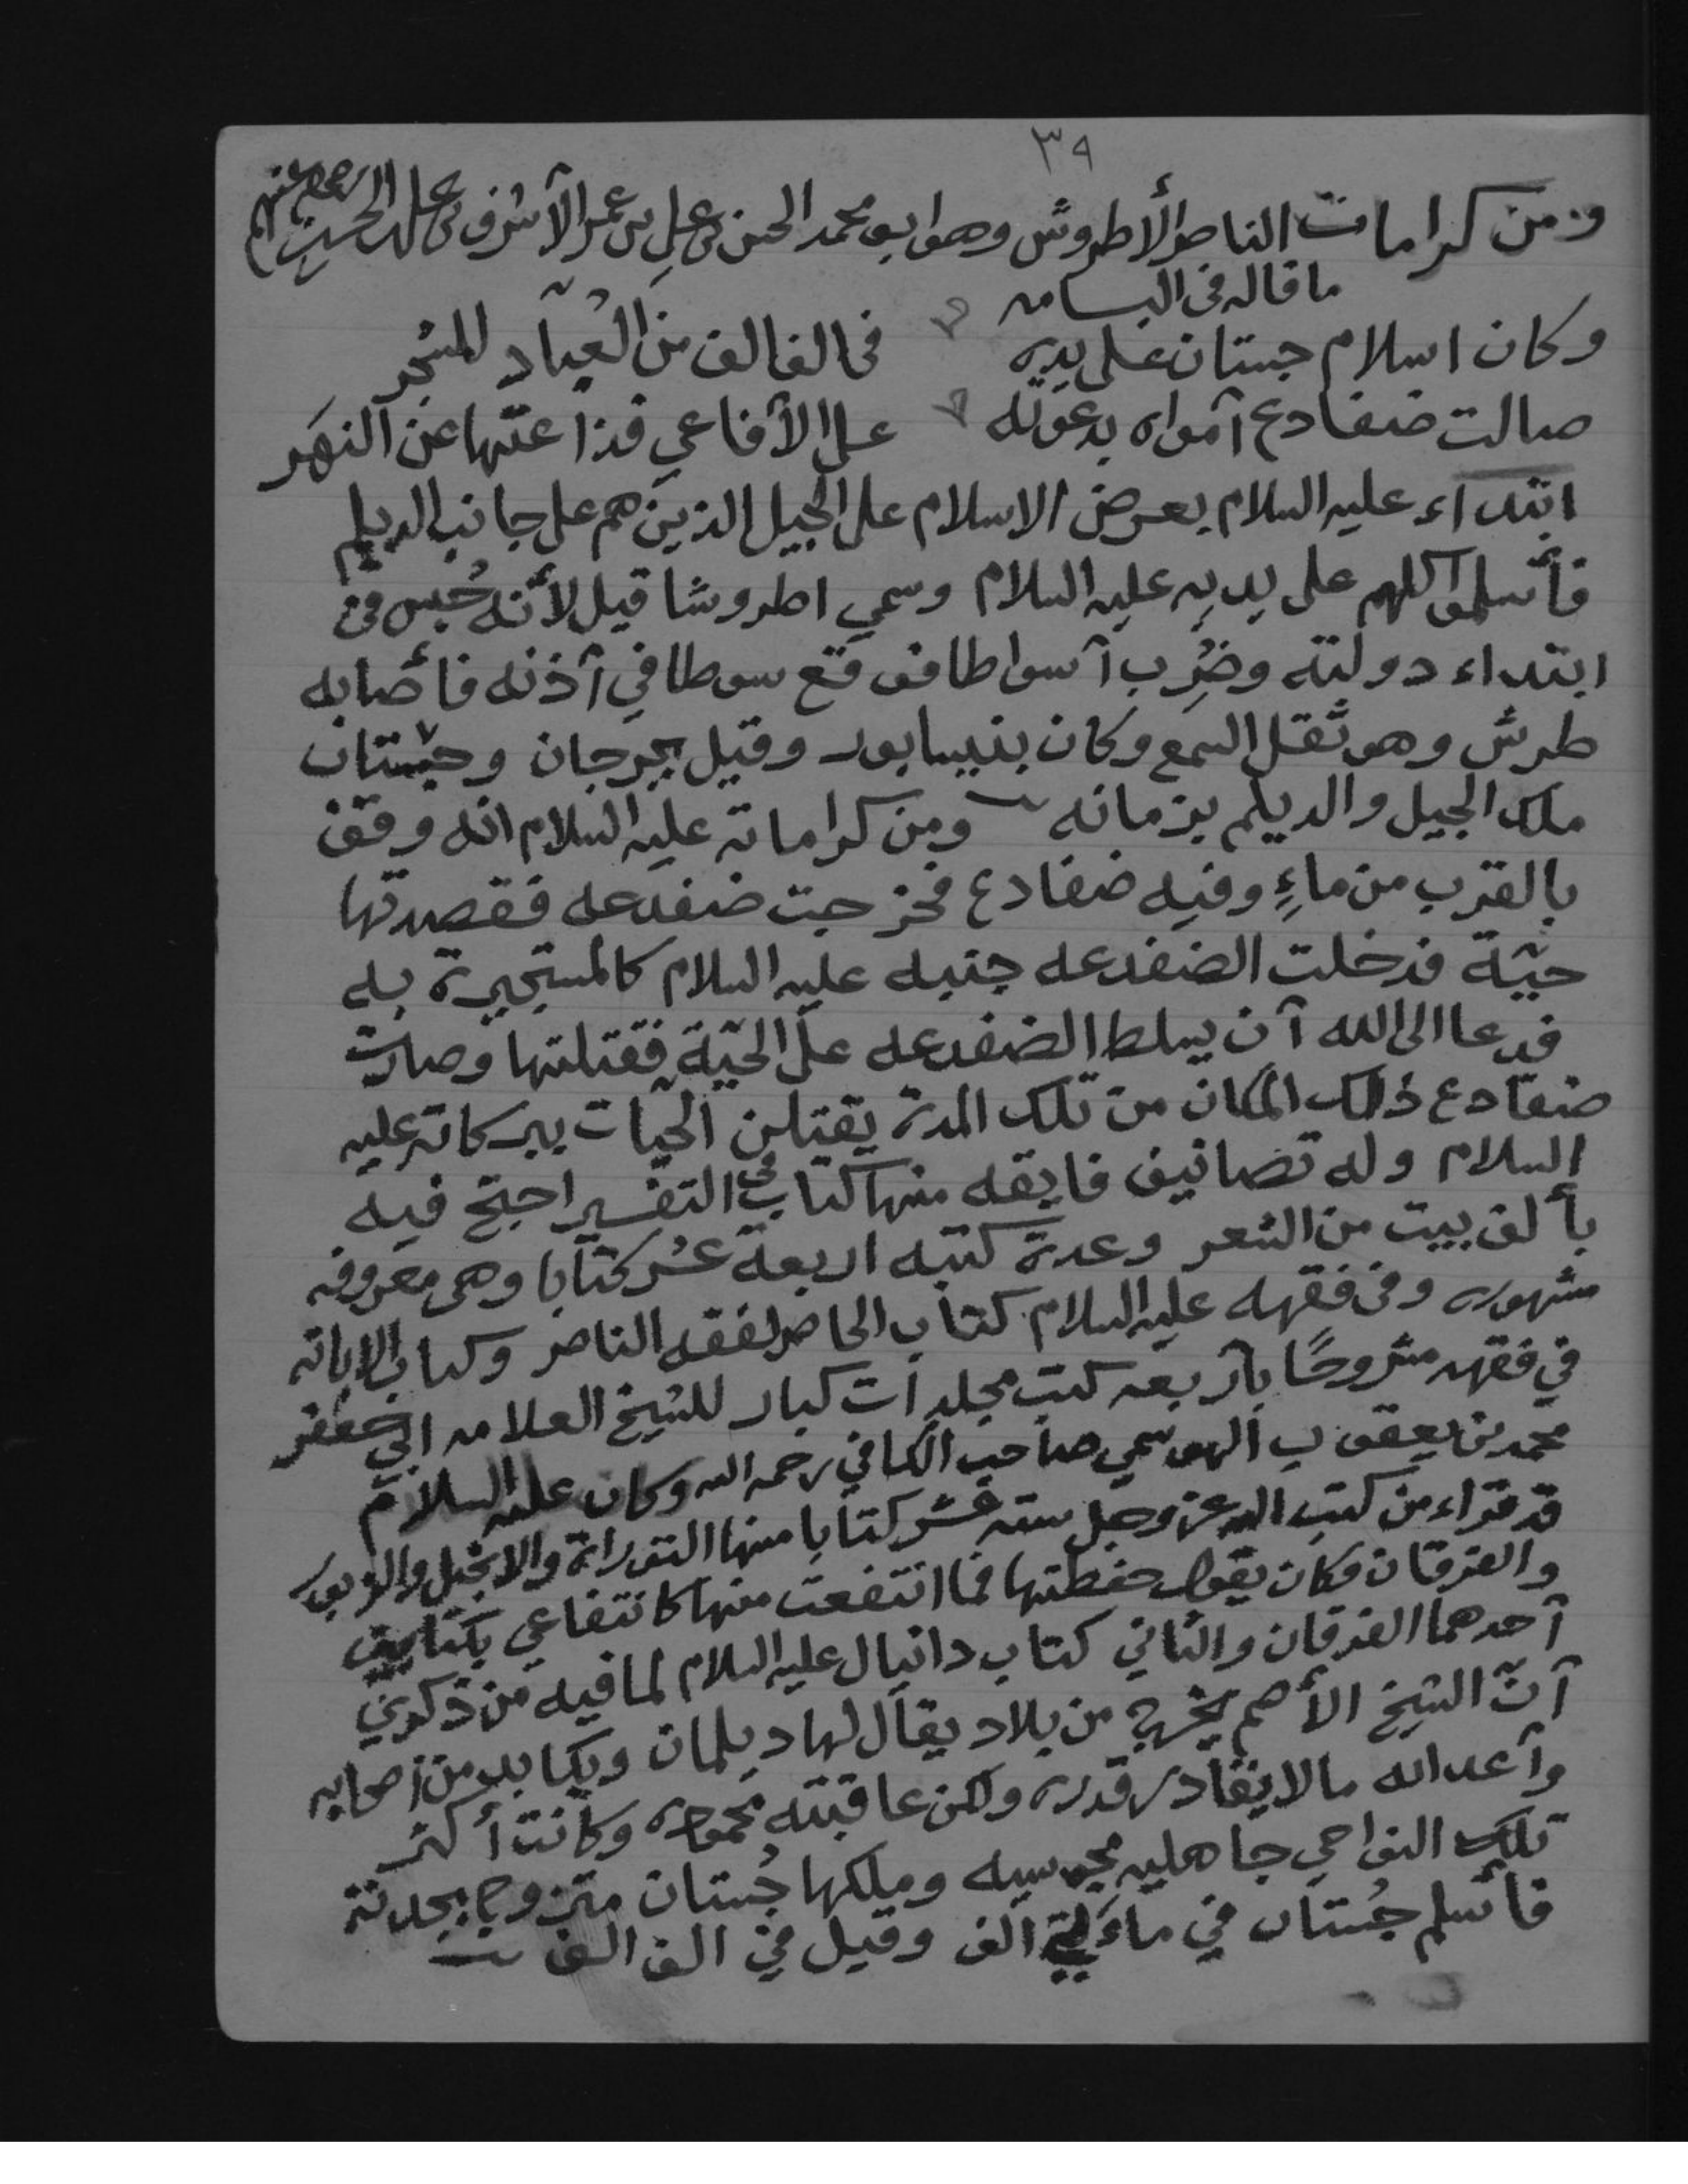 ٣٩
ومن كرامات الناصر الأطروش وهو ابو محمد الحسن بن علي بن عمر الأشرف بن علي بن الحسين
ما قاله في البسامه
وكان اسلام جستان على يده في الف الف من العباد للشجر
صالت ضفادع آمواه بدعوته على الآفاعي فذا عنّها عن النهَر
ابتداء عليه السلام بعرض الاسلام على الجيل الذين هم على جانب الديلم
فأسلموا كلهم على يديه عليه السلام وسمي اطروشا قيل لأنه حُبس في
ابتداء دولته وضُرِب آسواطا فوقع سوطا في آذنه فأصابه
طرش وهو ثقل السمع وكان بنيسابور وقيل بجرجان وجستان
ملك الجيل والديلم بزمانه ومن كراماته عليه السلام انه وقف
بالقرب من ماءٍ وفيه ضفادع فخرجت ضفدعه فقصدتها
حيّة فدخلت الضفدعه جنبه عليه السلام كالمستجيرة به
فدعا الى الله آن يسلط الضفدعه على الحيّة فقتلتها وصارت
ضفادع ذلك المكان من تلك المدة يقتلن الحيات ببركاته عليه
السلام وله تصانيف فايقه منها كتاب في التفسير احتج فيه
بألف بيت من الشعر وعدة كتبه اربعة عشر كتابا وهي معروفه
مشهوره وفي فقهه عليه السلام كتاب الحاصر لفقه الناصر وكتاب الابانه
في فقهه مشروحًا بآربعه كتب مجلدات كبار للشيخ العلامه ابي جعفر
محمد بن يعقوب الهوسمي صاحب الكافي رحمه الله وكان عليه السلام
قد قراء من كتب الله عز وجل سته عشر كتابا منها التوراة والانجيل والزبور
والفرقان فكان يقول حفظتها فما انتفعت منها كانتفاعي بكتابين
آحدهما الفرقان والثاني كتاب دانيال عليه السلام لما فيه من ذكري
آنّ الشيخ الأصم يخرج من بلاد يقال لها ديلمان ويكابد من اصحابه
وآعدائه مالا يقادر قدره ولكن عاقبته محموده وكانت أكثر
تلك النواحي جاهليه مجوسيه وملكها جُستان متزوج بجدته
فأسلم جُستان في مائتي الف وقيل في الف الف